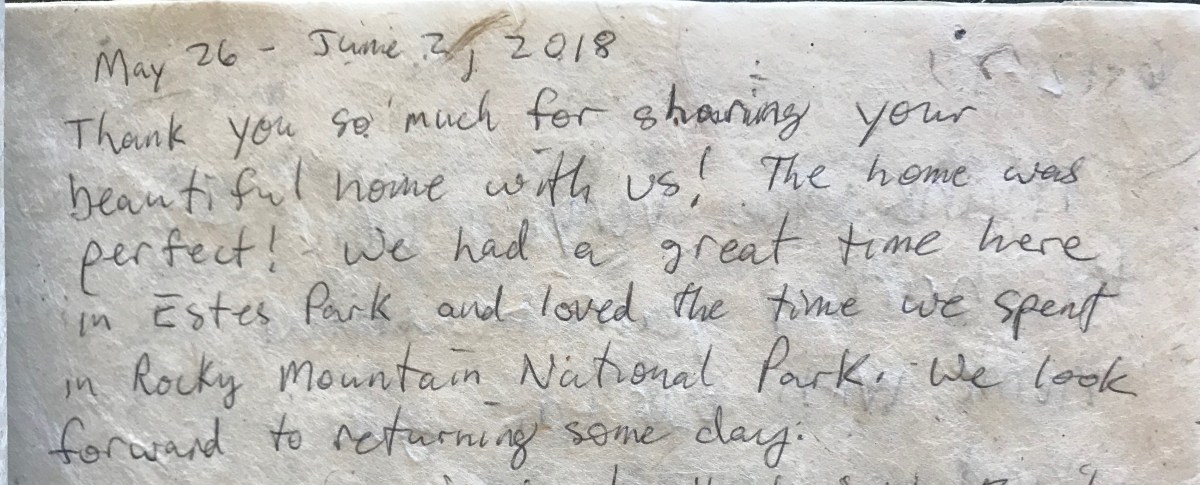 May 26 - June 2, 2018
Thank you so much for sharing your
beautiful home with us! The home was
perfect! We had a great time here
in Estes Park and loved the time we spent
in Rocky Mountain National Park. We look
forward to returning some day.